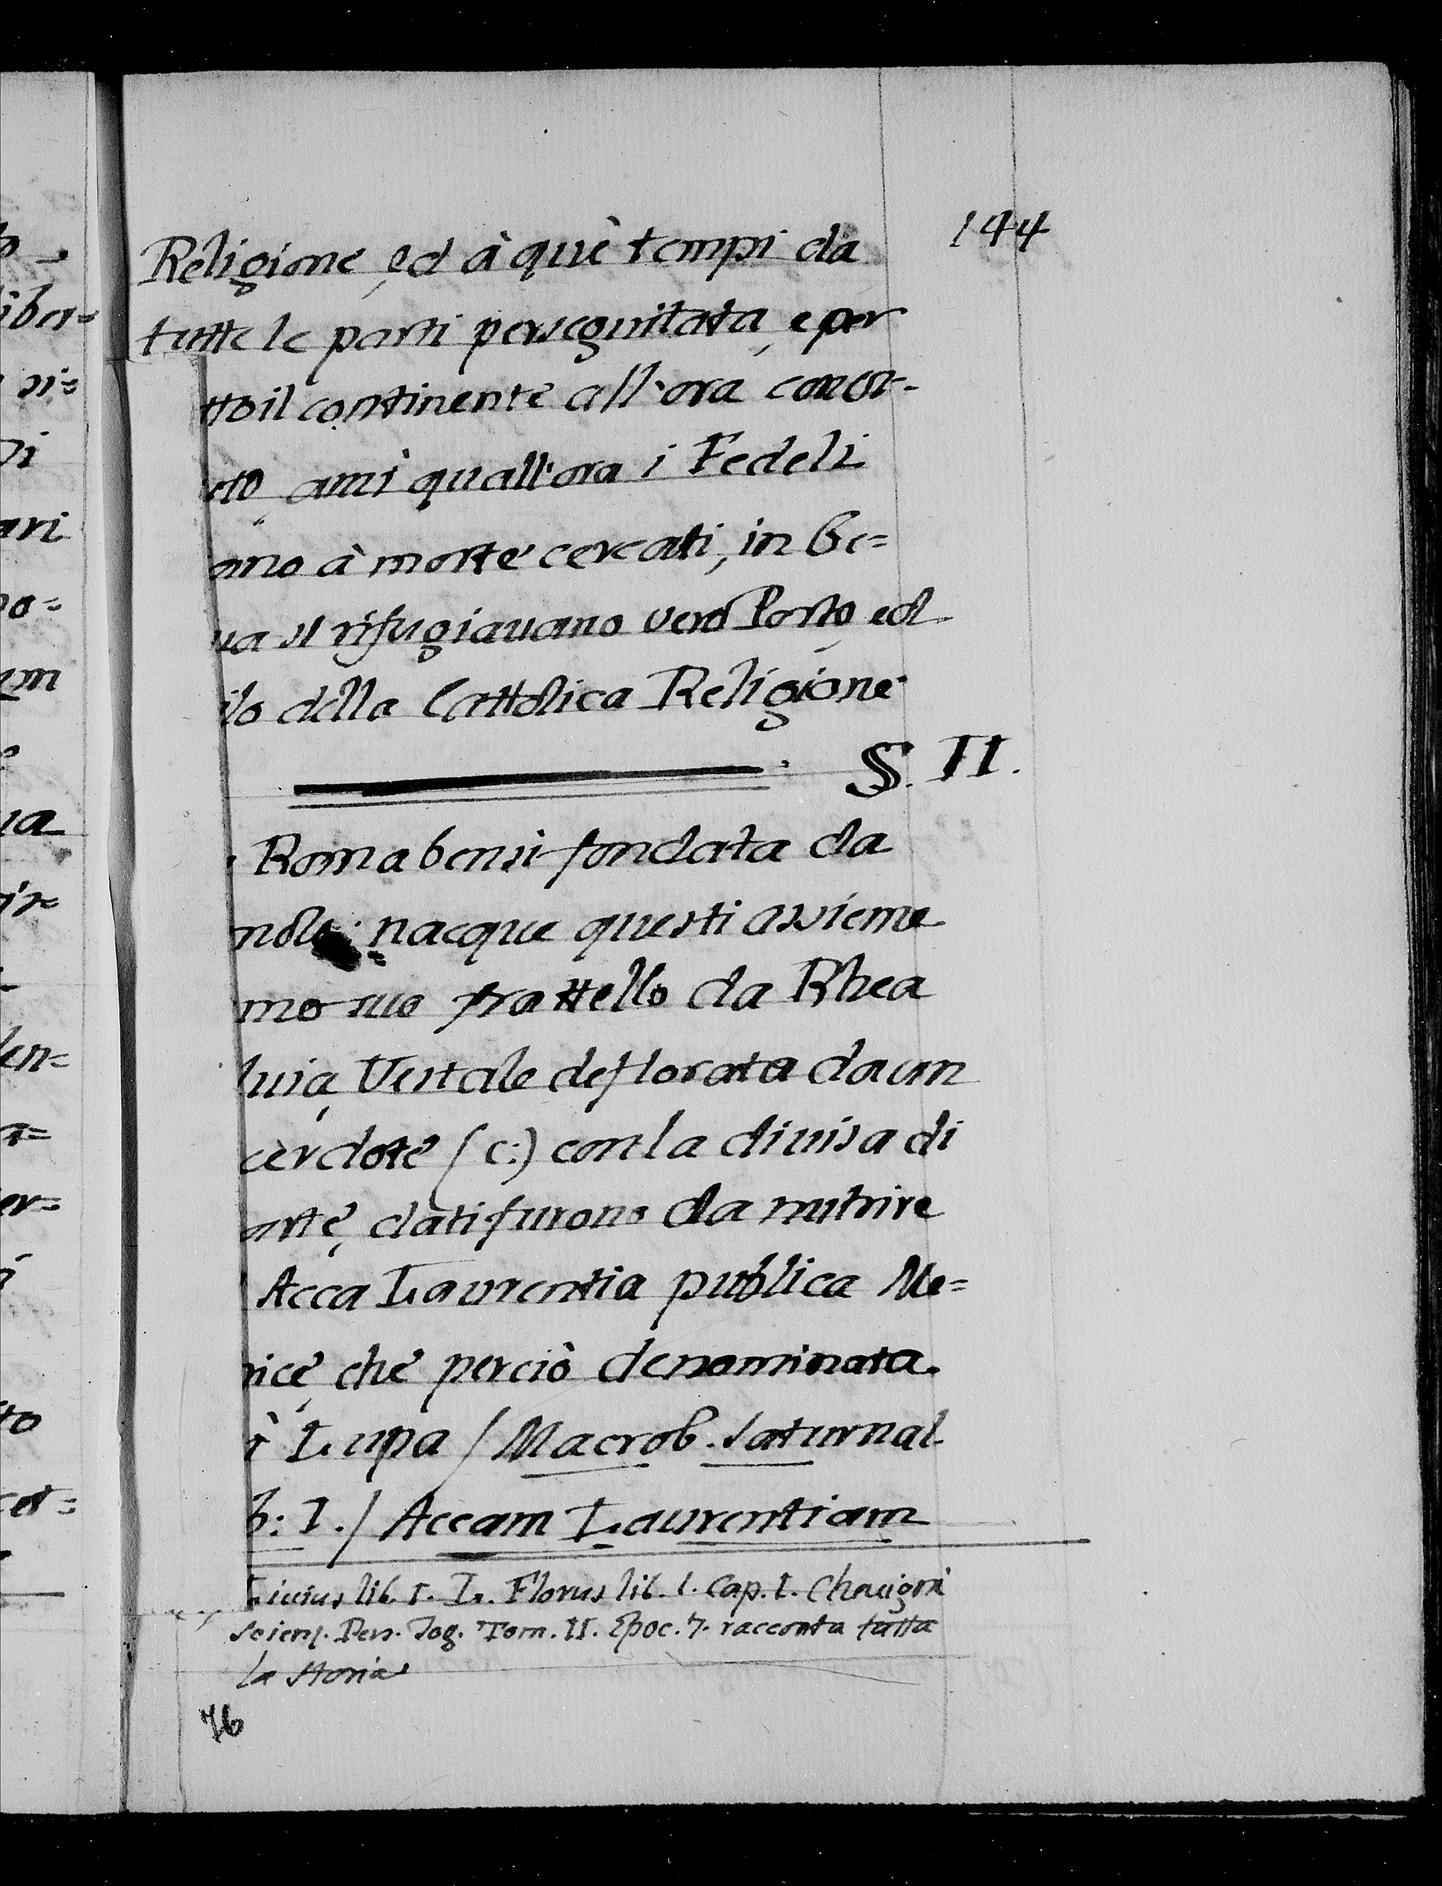 144
Religione, ed à què tempi da
tutte le parti perseguitata, e per
tto il continente all'ora conos-
eto, anzi quall'ora i Fedeli
ano à morte cercati, in Ge=
ua si rifugiauano vero Porto, ed
ilo della Cattolica Religione
§. II.
Roma bensi fondata da
molo: nacque questi assieme
mo suo frattello da Rhea
luia, Vestale deflorata da un
cerdote (c:) con la diuisa di
arte, dati furono da nutrire
Acca Laurentia publica Me=
rice, che perciò denominata
ì Lupa / Macrob. Saturnal.
b: I./ Accam Laurentiam
Liuius lib. I. L. Florus lib. I. Cap. I. Chauigni
Scienz. Pers. Tog. Tom. II. Epoc. 7. racconta tutta
la storia
76
iber=
si=
ari
um
ua
len=
er=
to